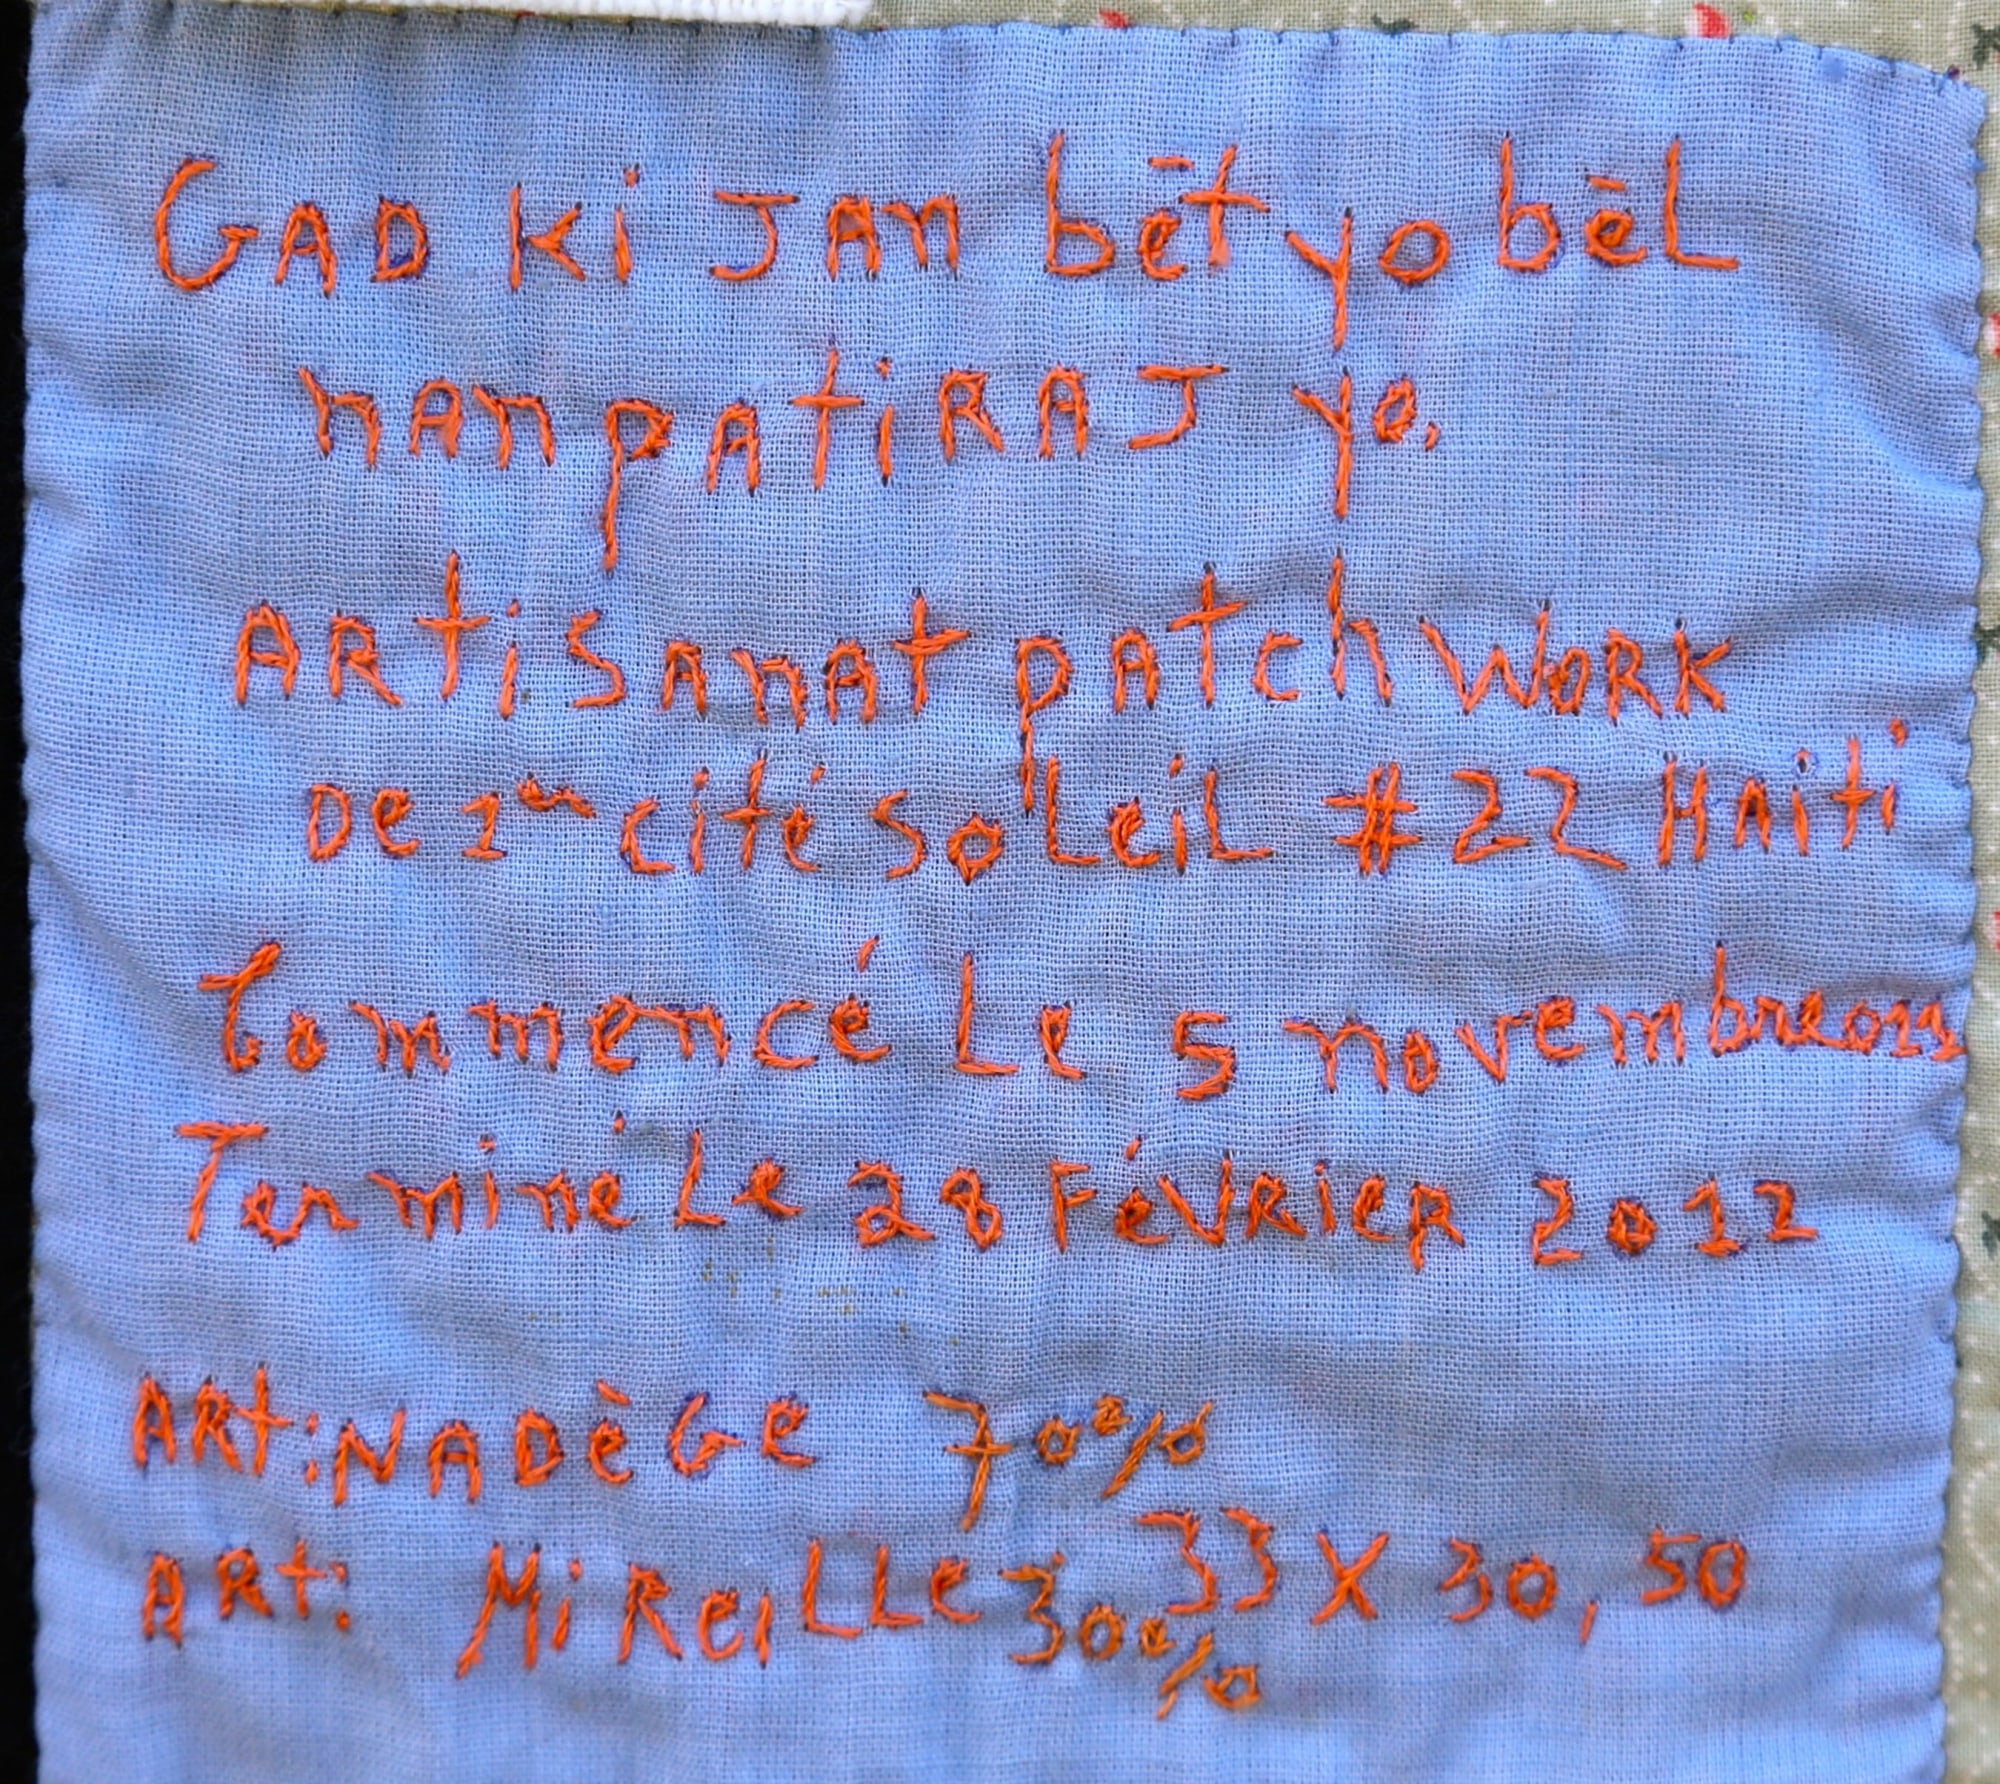 GAD Ki JAN bēt yo bèL
nAn patiRAJ yo,
ARtiSAnAt pAtch WoRK
De 1er cité SoLeiL #22 HAiti
Commencé Le 5 novembre 011
Terminé Le 28 FévRieR 2012
ARt: NADèGe 70%
ARt: MiReiLLe 30% 33 X 30,50